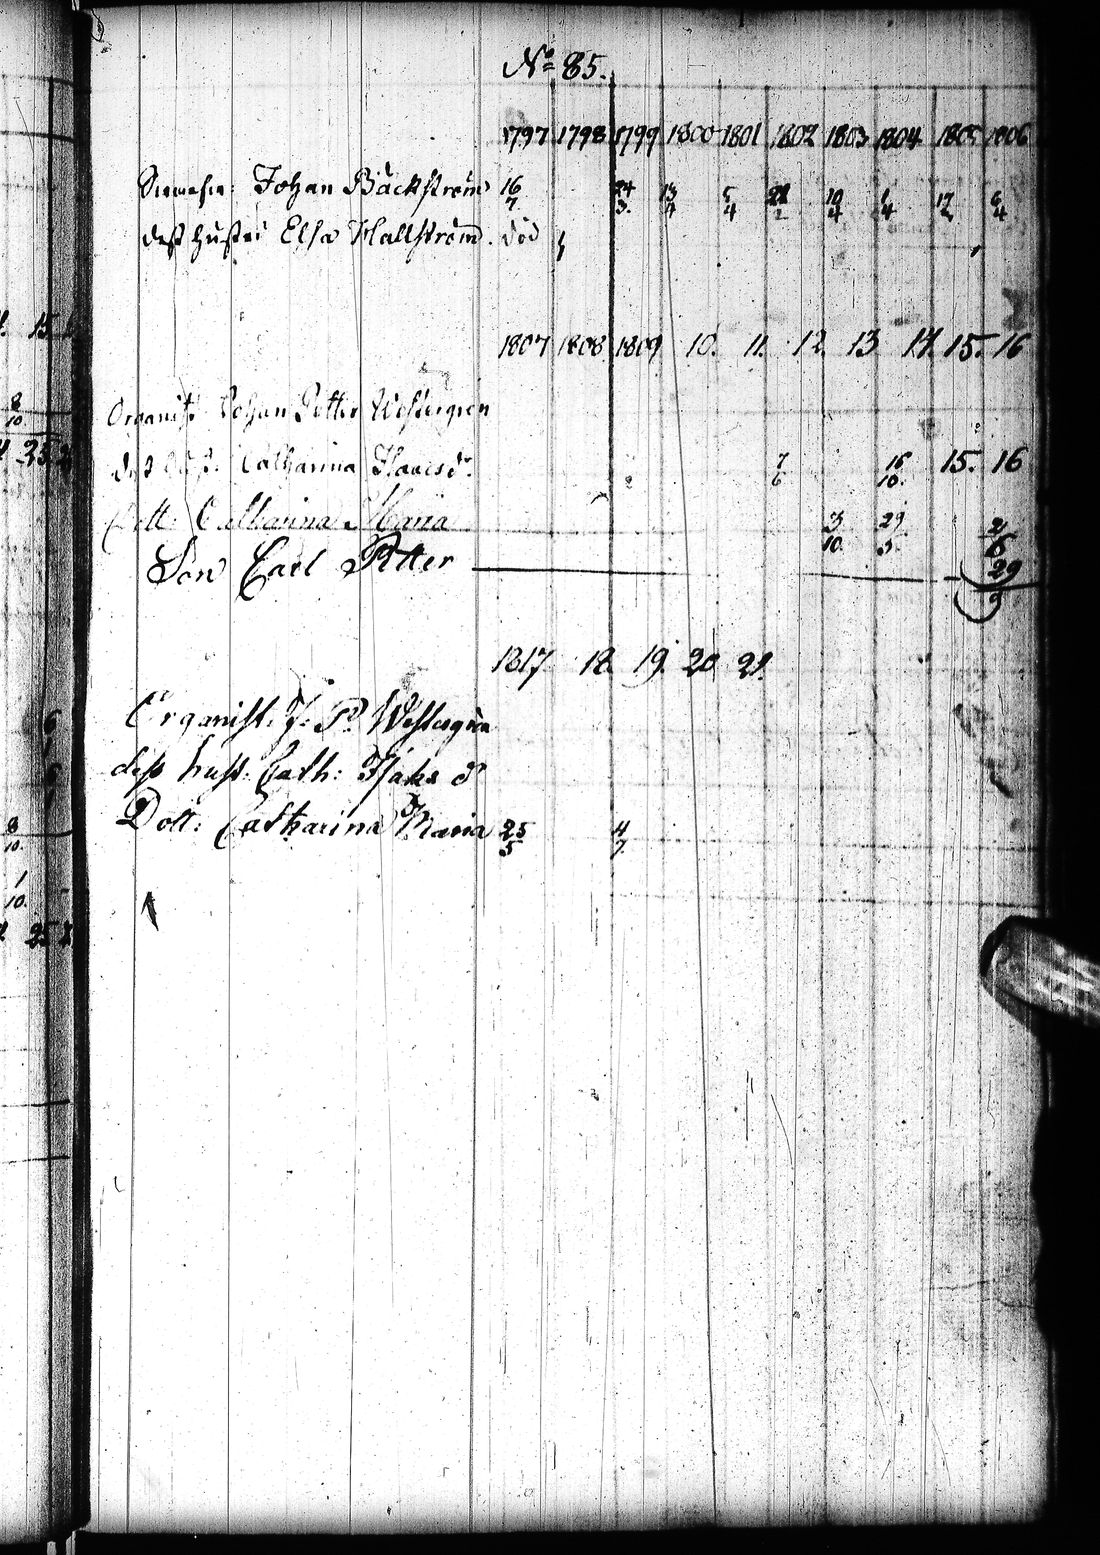 No 85.
1797 1798 1799 1800 1801 1802 1803 1804 1805 1806
Johan Bäckström 16/7 24/3. 13/4 5/4 21/2 10/4 1/4 17/2 6/4
dess hustru Elsa Hallström. död
1807 1808 1809 10. 11. 12. 13 14. 15. 16
Organist Johan Petter Westergren
dess Hust: Catharina 7/6 16/10. 15. 16
Dott: Catharina Maria 3/10. 29/5. 2/6
Son Carl Petter 29/9
1817. 18. 19. 20 21.
Organist. J: P. Westergren
dess hust: Cath: Isaks dr
Dott: Catharina Maria 25/5 4/7.